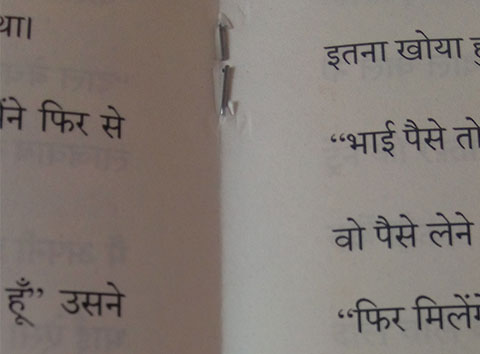 था।
फिर से
हूँ” उसने
इतना खोया
“भाई पैसे तो
वो पैसे लेने
“फिर मिलेंगे